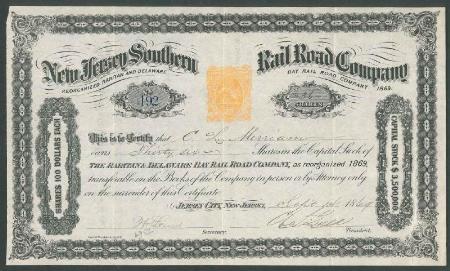 New Jersey Southern Rail Road Company
REORGANIZED RARITAN AND DELAWARE BAY RAIL ROAD COMPANY 1869.
192
SHARES
This is to Certify that C L Merriam
owns Thirty six Shares in the Capital Stock of
THE RARITAN & DELAWARE BAY RAIL ROAD COMPANY, as reorganized 1869,
transferable on the Books of the Company in person or by Attorney only
on the surrender of this Certificate
JERSEY CITY, NEW JERSEY, Sept 1869
Secretary. President.
SHARES 100 DOLLARS EACH
CAPITAL STOCK $ 3,500,000